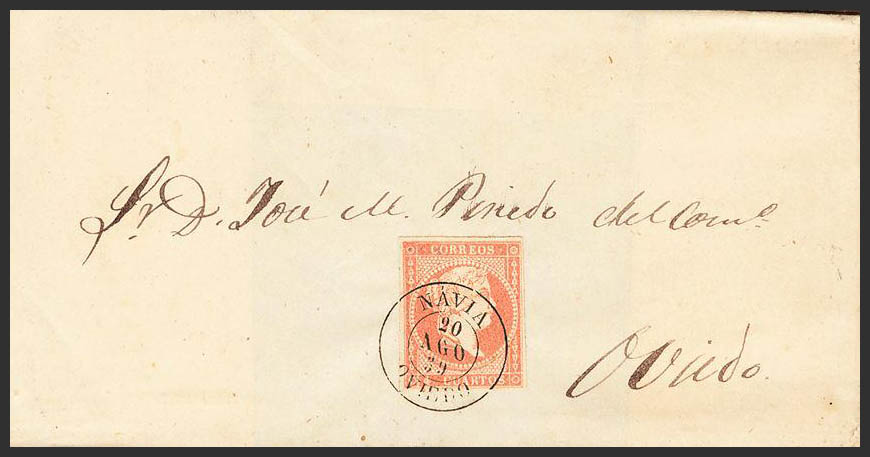 Sr. D. José M. Pinedo del Como
CORREOS
NAVIA
20
AGO
59
OVIEDO
CUARTOS
Oviedo.